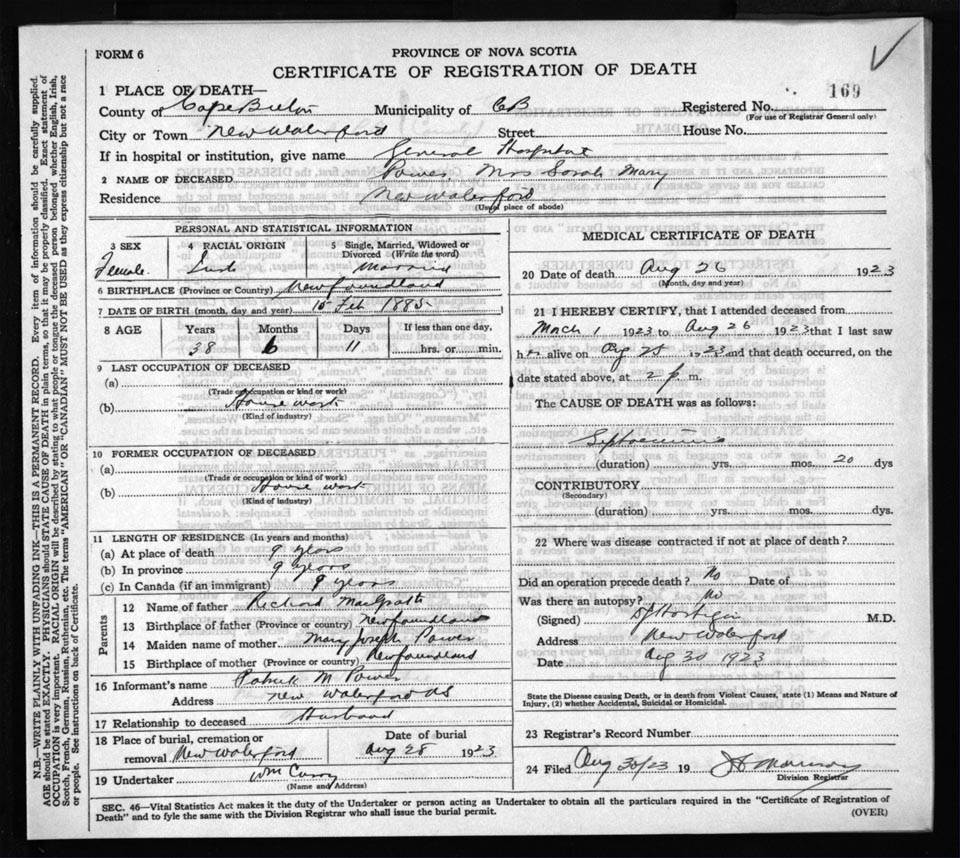 FORM 6
PROVINCE OF NOVA SCOTIA
CERTIFICATE OF REGISTRATION OF DEATH
1 PLACE OF DEATH—
169
County of Cape Breton Municipality of CB Registered No.
(For use of Registrar General only)
City or Town New Waterford Street House No.
If in hospital or institution, give name General Hospital
2 NAME OF DECEASED Power Mrs Sarah Mary
Residence New Waterford
(Usual place of abode)
PERSONAL AND STATISTICAL INFORMATION
3 SEX 4 RACIAL ORIGIN 5 Single, Married, Widowed or Divorced (Write the word)
Female Irish Married
6 BIRTHPLACE (Province or Country) Newfoundland
7 DATE OF BIRTH (month, day and year) 15 Feb 1885
8 AGE Years Months Days If less than one day,
38 6 11 hrs. or min.
9 LAST OCCUPATION OF DECEASED
(a)
(Trade or occupation or kind or work)
(b) House work
(Kind of industry)
10 FORMER OCCUPATION OF DECEASED
(a)
(Trade or occupation or kind or work)
(b) House work
(Kind of industry)
11 LENGTH OF RESIDENCE (In years and months)
(a) At place of death 9 years
(b) In province 9 years
(c) In Canada (if an immigrant) 9 years
Parents
12 Name of father Richard MacGrath
13 Birthplace of father (Province or country) Newfoundland
14 Maiden name of mother Mary Joseph Power
15 Birthplace of mother (Province or country) Newfoundland
16 Informant's name Patrick M Power
Address New Waterford NS
17 Relationship to deceased Husband
18 Place of burial, cremation or removal New Waterford Date of burial Aug 28 1923
19 Undertaker Wm Curry
(Name and Address)
MEDICAL CERTIFICATE OF DEATH
20 Date of death Aug 26 1923
(Month, day and year)
21 I HEREBY CERTIFY, that I attended deceased from
March 1 1923 to Aug 26 1923 that I last saw
her alive on Aug 25 1923 and that death occurred, on the
date stated above, at 2 p m.
The CAUSE OF DEATH was as follows:
Septicaemia
(duration) yrs. mos. 20 dys
CONTRIBUTORY
(Secondary)
(duration) yrs. mos. dys.
22 Where was disease contracted if not at place of death?
Did an operation precede death? No Date of
Was there an autopsy? No
(Signed) M.D.
Address New Waterford
Date Aug 30 1923
State the Disease causing Death, or in death from Violent Causes, state (1) Means and Nature of
Injury, (2) whether Accidental, Suicidal or Homicidal.
23 Registrar's Record Number
24 Filed Aug 30/23 19
Division Registrar
SEC. 46—Vital Statistics Act makes it the duty of the Undertaker or person acting as Undertaker to obtain all the particulars required in the "Certificate of Registration of
Death" and to fyle the same with the Division Registrar who shall issue the burial permit.
(OVER)
N.B.—WRITE PLAINLY WITH UNFADING INK—THIS IS A PERMANENT RECORD. Every item of information should be carefully supplied.
AGE should be stated EXACTLY. PHYSICIANS should STATE CAUSE OF DEATH in plain terms, so that it may be properly classified. Exact statement of
OCCUPATION is very important. RACIAL ORIGIN will be described by stating to what people or tongue the deceased person belonged whether English, Irish,
Scotch, French, German, Russian, Ruthenian, etc. The terms "AMERICAN" OR "CANADIAN" MUST NOT BE USED as they express citizenship but not a race
or people. See instructions on back of Certificate.